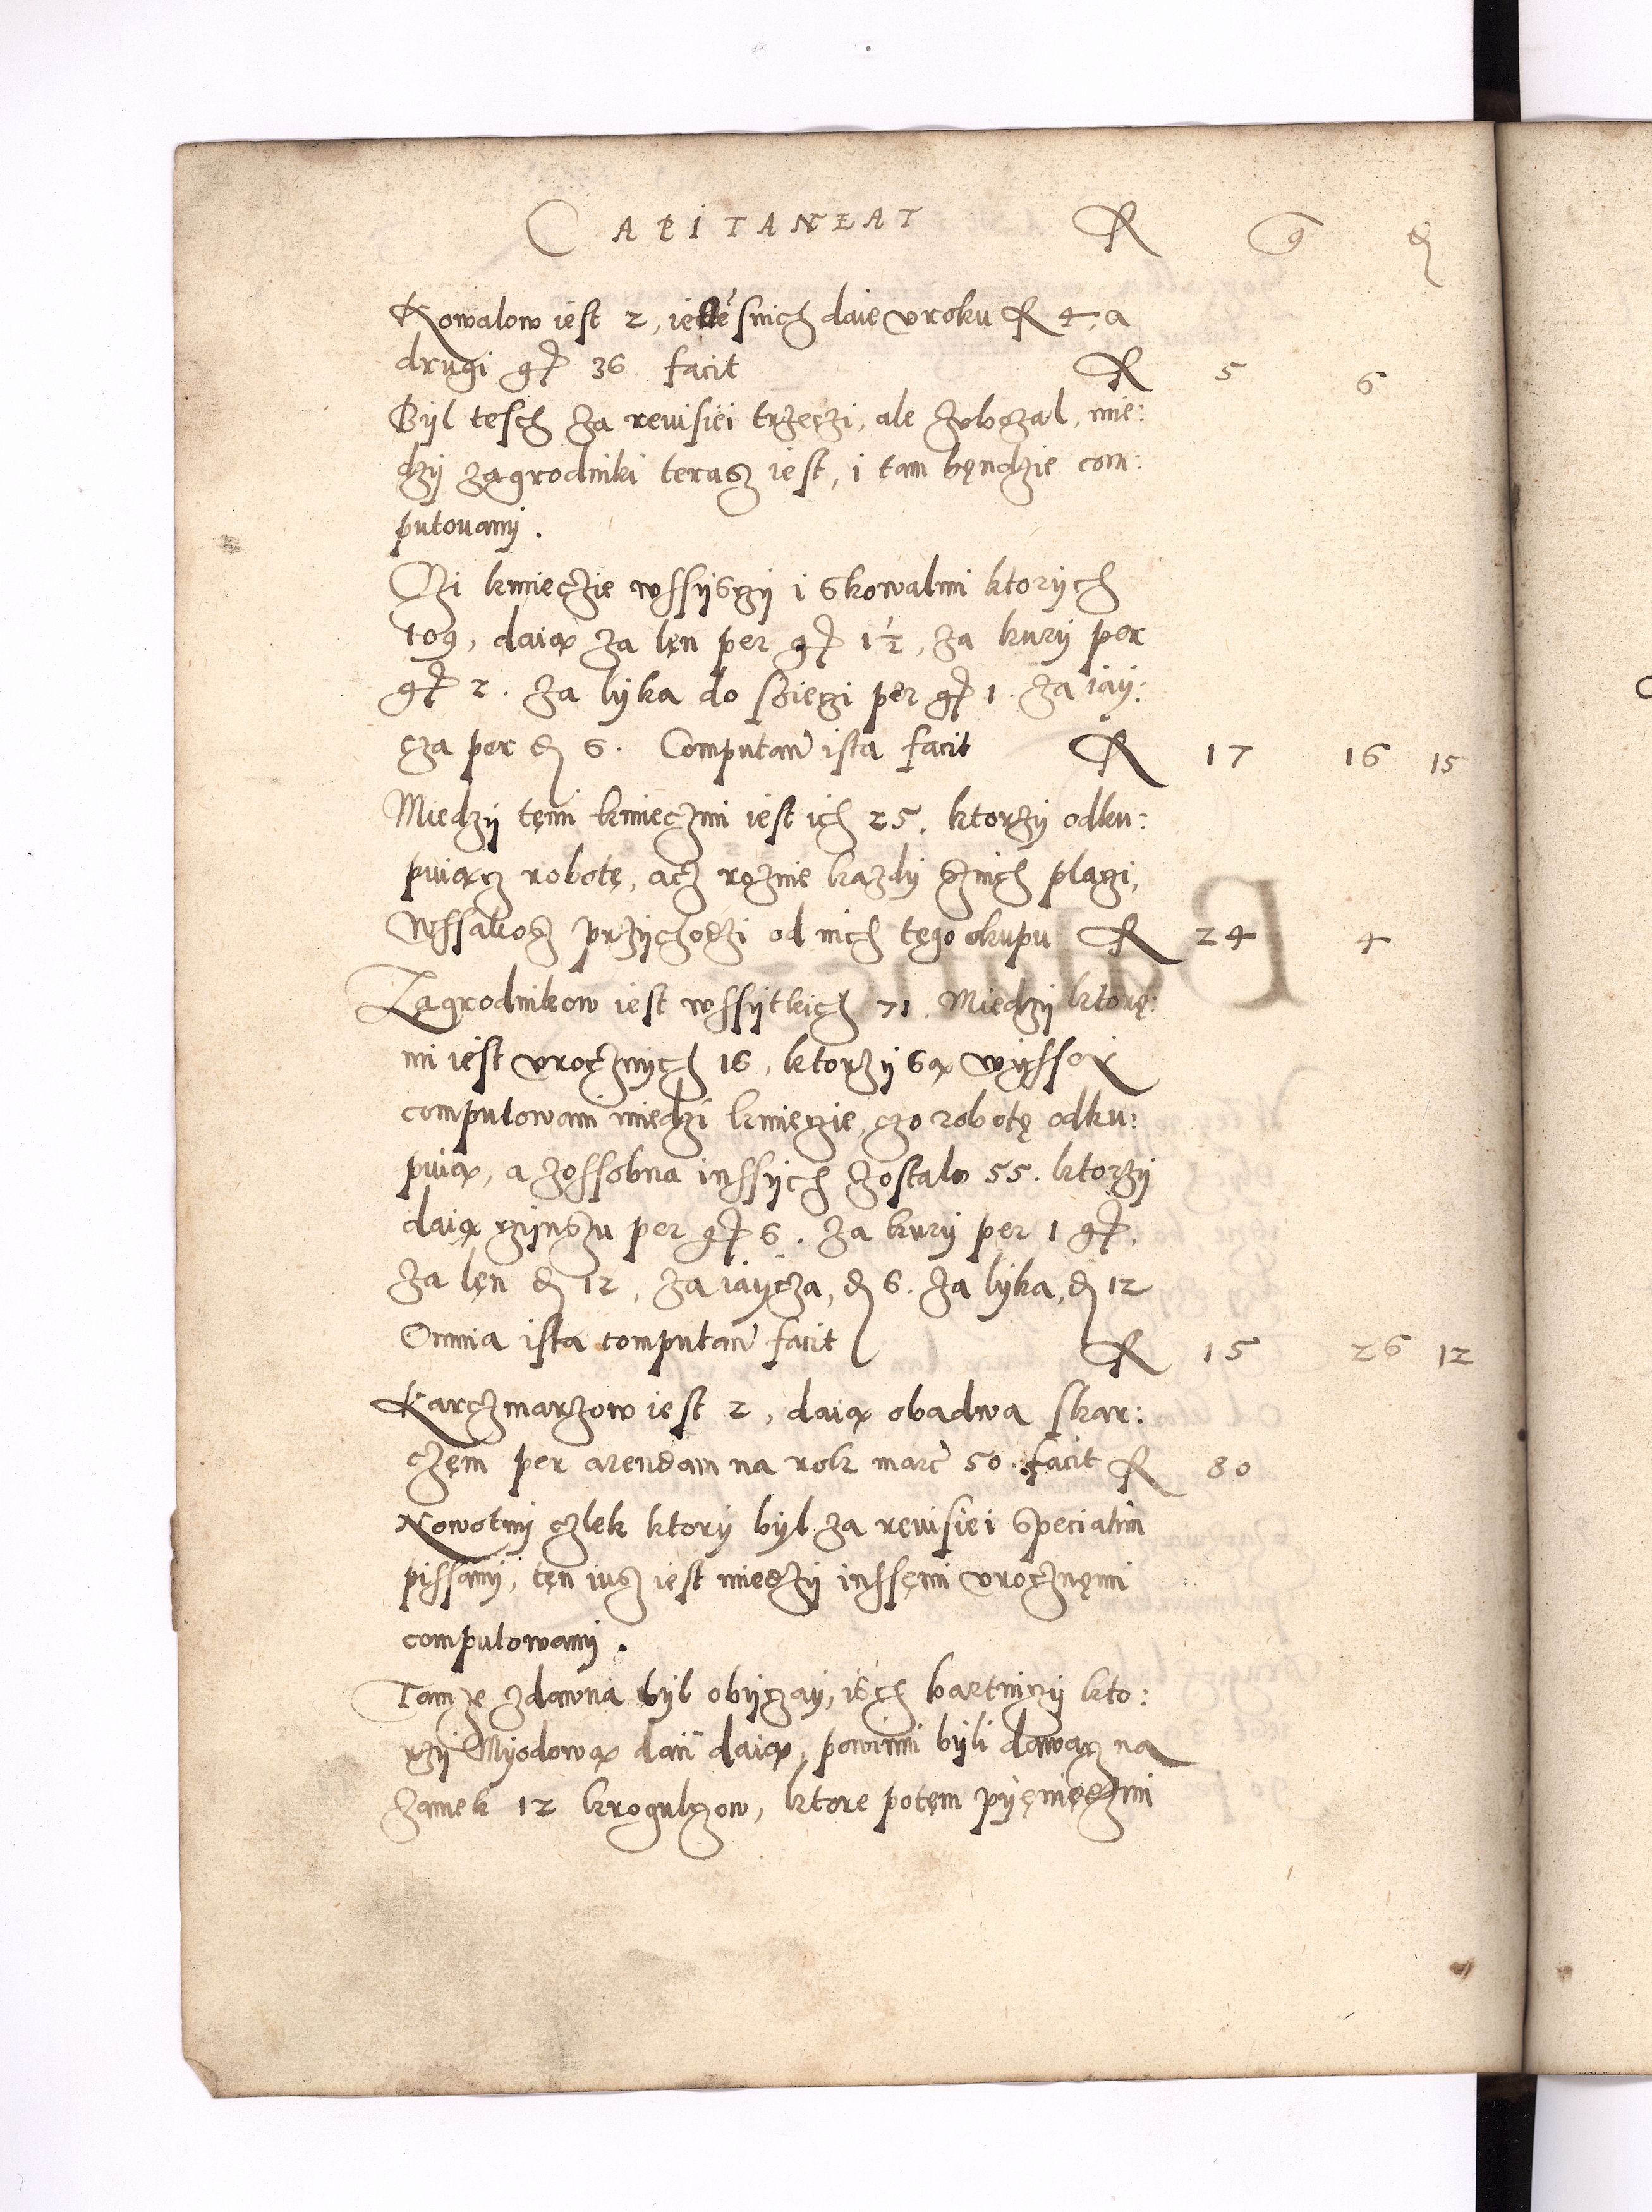 CAPITANEAT R g d
Kowalow iest 2, snich daie vroku R 4, a
drugi gr 36 facit R 5 6
Byl tesch za reuisiei trzeczi, ale zvbozal, mie:
dzy zagrodniki terasz iest, i tam bęndzie com:
putouany.
Czi kmieczie wssysczy i skowalmi ktorych
109, daią za lęn per gr 1½, za kury per
gr 2. za lyka do sieczi per gr 1. za iay:
cza per d 6. Computan ista facit R 17 16 15
Miedzy tęmi kmieczmi iest ich 25, ktorzy odku:
puiącz robotę, acz rożnie kazdy sznich placzi,
Wssakosz przychodzi od nich tęgo okupu R 24 4
Zagrodnikow iest wssytkich 71. Miedzy ktorę:
mi iest vrocznych 16, ktorzy są wysser
computowani miedzi kmieczie, czo robotę odku:
puią, a zossobna inssych zostalo 55. ktorzy
daią czynszu per gr 6. za kury per 1 gr,
za lęn d 12, za iaycza, d 6. za lyka, d 12
Omnia ista computan facit R 15 26 12
Karczmarzow iest 2, daią obadwa skar:
częm per arendam na rok marc 50. facit R 80
Nowotny czlek ktory byl za ręuisiei specialim
pissany, tęn iusz iest miedzy inssęmi vrocznęmi
computowany.
Tamze zdawna byl obyczay, isch bartniczy kto:
rzy Myodową dań daią, powinni byli dawacz na
zamek 12 krogulczow, ktore potęm pyęniędzmi